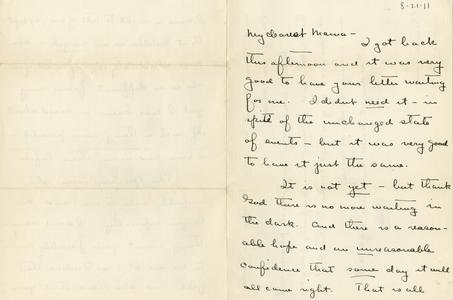 8-21-11
My dearest Mama -
I got back
this afternoon and it was very
good to have your letter waiting
for me. I didnt need it - in
spite of the unchanged state
of events - but it was very good
to have it just the same.
It is not yet - but thank
God there is no more waiting in
the dark. And there is a reason-
able hope and an unreasonable
confidence that some day it will
all come right. That is all